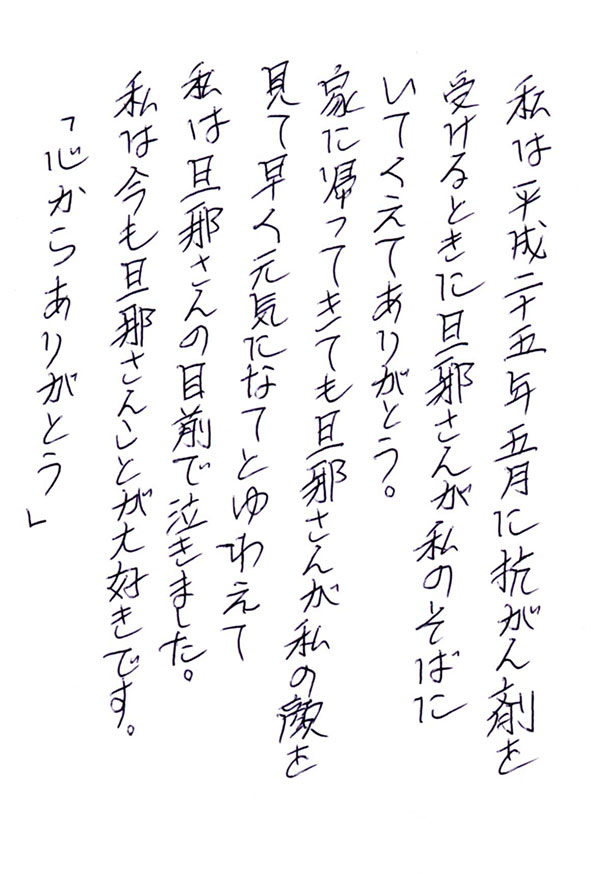 私は平成二十五年五月に抗がん剤を
受けるときに旦那さんが私のそばに
いてくえてありがとう。
家に帰ってきても旦那さんが私の顔を
見て早く元気になてとゆわえて
私は旦那さんの目前で泣きました。
私は今も旦那さんことが大好きです。
「心からありがとう」